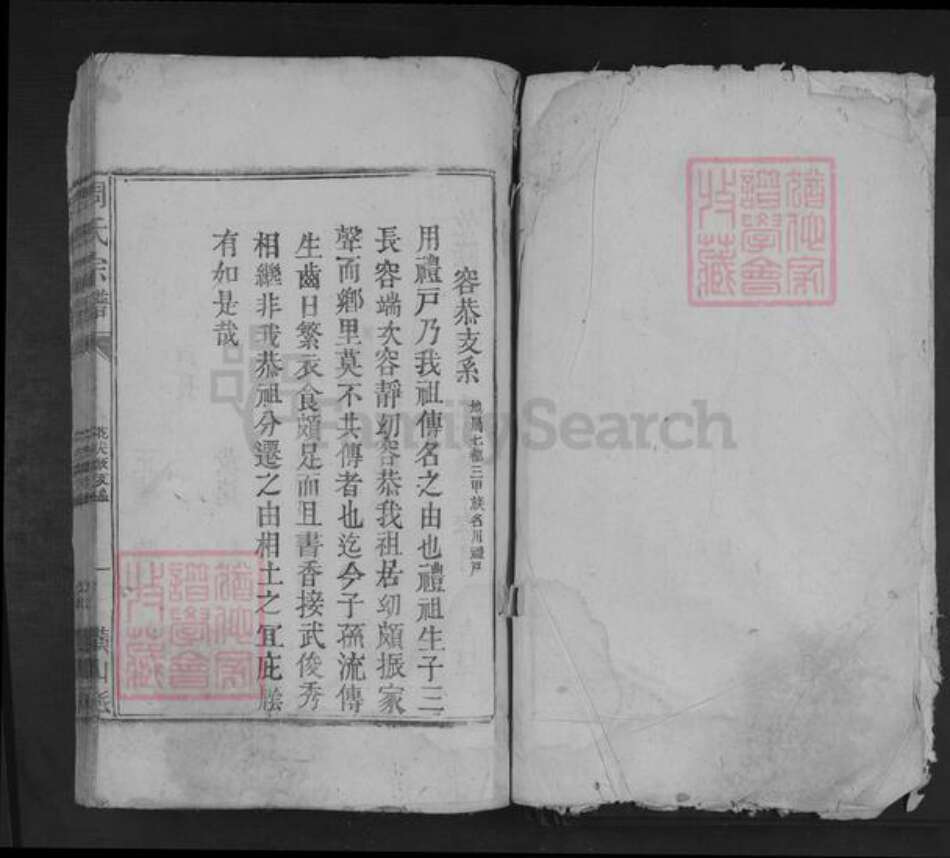 容恭支系 地屬七都三甲族名用禮戶
用禮戶乃我祖傳名之由也禮祖生子三
長容端次容靜幼容恭我祖居幼頗振家
聲而鄉里莫不共傳者也迄今子孫流傳
生齒日繁衣食頗足而且書香接武俊秀
相繼非我恭祖分遷之由相土之宜庇廕
有如是哉
周氏宗譜
一
FamilySearch